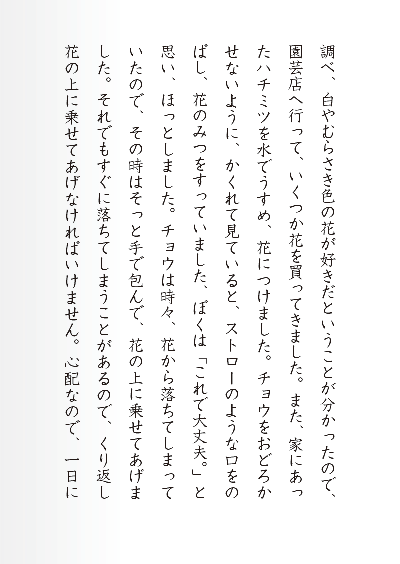 調べ、白やむらさき色の花が好きだということが分かったので、
園芸店へ行って、いくつか花を買ってきました。また、家にあっ
たハチミツを水でうすめ、花につけました。チョウをおどろか
せないように、かくれて見ていると、ストローのような口をの
ばし、花のみつをすっていました、ぼくは「これで大丈夫。」と
思い、ほっとしました。チョウは時々、花から落ちてしまって
いたので、その時はそっと手で包んで、花の上に乗せてあげま
した。それでもすぐに落ちてしまうことがあるので、くり返し
花の上に乗せてあげなければいけません。心配なので、一日に